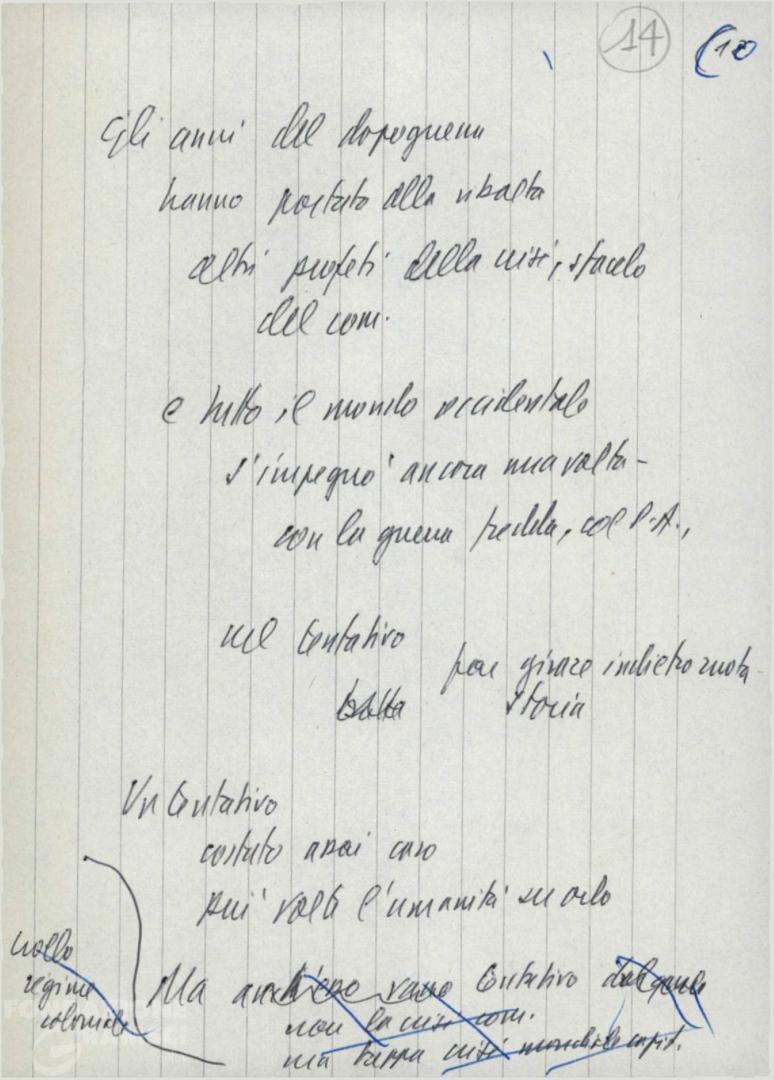 14 (12
Gli anni del dopoguerra
hanno portato alla ribalta
altri profeti della crisi, sfacelo
del com.
e tutto il mondo occidentale
s'impegnò ancora una volta -
con la guerra fredda, col P.A.,
nel tentativo
per girare indietro ruota
storia
Un tentativo
costato assai caro
più volte l'umanità su orlo
crollo
regime
coloniale
Ma anch'esso vano tentativo dal quale
non la crisi com.
ma tappa crisi mondiale capit.
FONDAZIONE
GRAMSCI